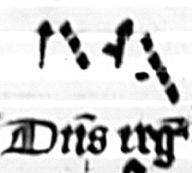 Dñs reg̅